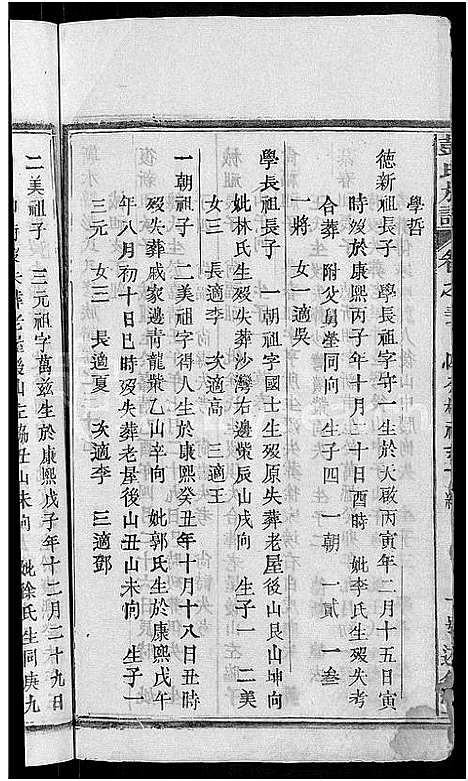 彭氏族譜
卷之
學哲
德新祖長子　學長祖字守一生於大啟丙寅年二月十五日寅
時歿於康熙丙子年十月二十日酉時　妣李氏生歿失考
合葬　附父舅塋同向　生子四　一朝　一貳　一叁
一將　女一適吳
學長祖長子　一朝祖字國士生歿原失葬老屋後山艮山坤向
妣林氏生歿失葬沙灣右邊紫辰山戌向　生子一　二美
女三　長適李　次適高　三適王
一朝祖子　二美祖字得人生於康熙癸丑年十月十八日丑時
歿失葬戚家邊青龍紫乙山辛向　妣郭氏生於康熙戊午
年八月初十日巳時歿失葬老屋後山丑山未向　生子一
三元　女三　長適夏　次適李　三適鄧
二美祖子　三元祖字萬茲生於康熙戊子年十二月二十九日
時歿失葬老屋後山左脇丑山未向　妣徐氏生同庚九